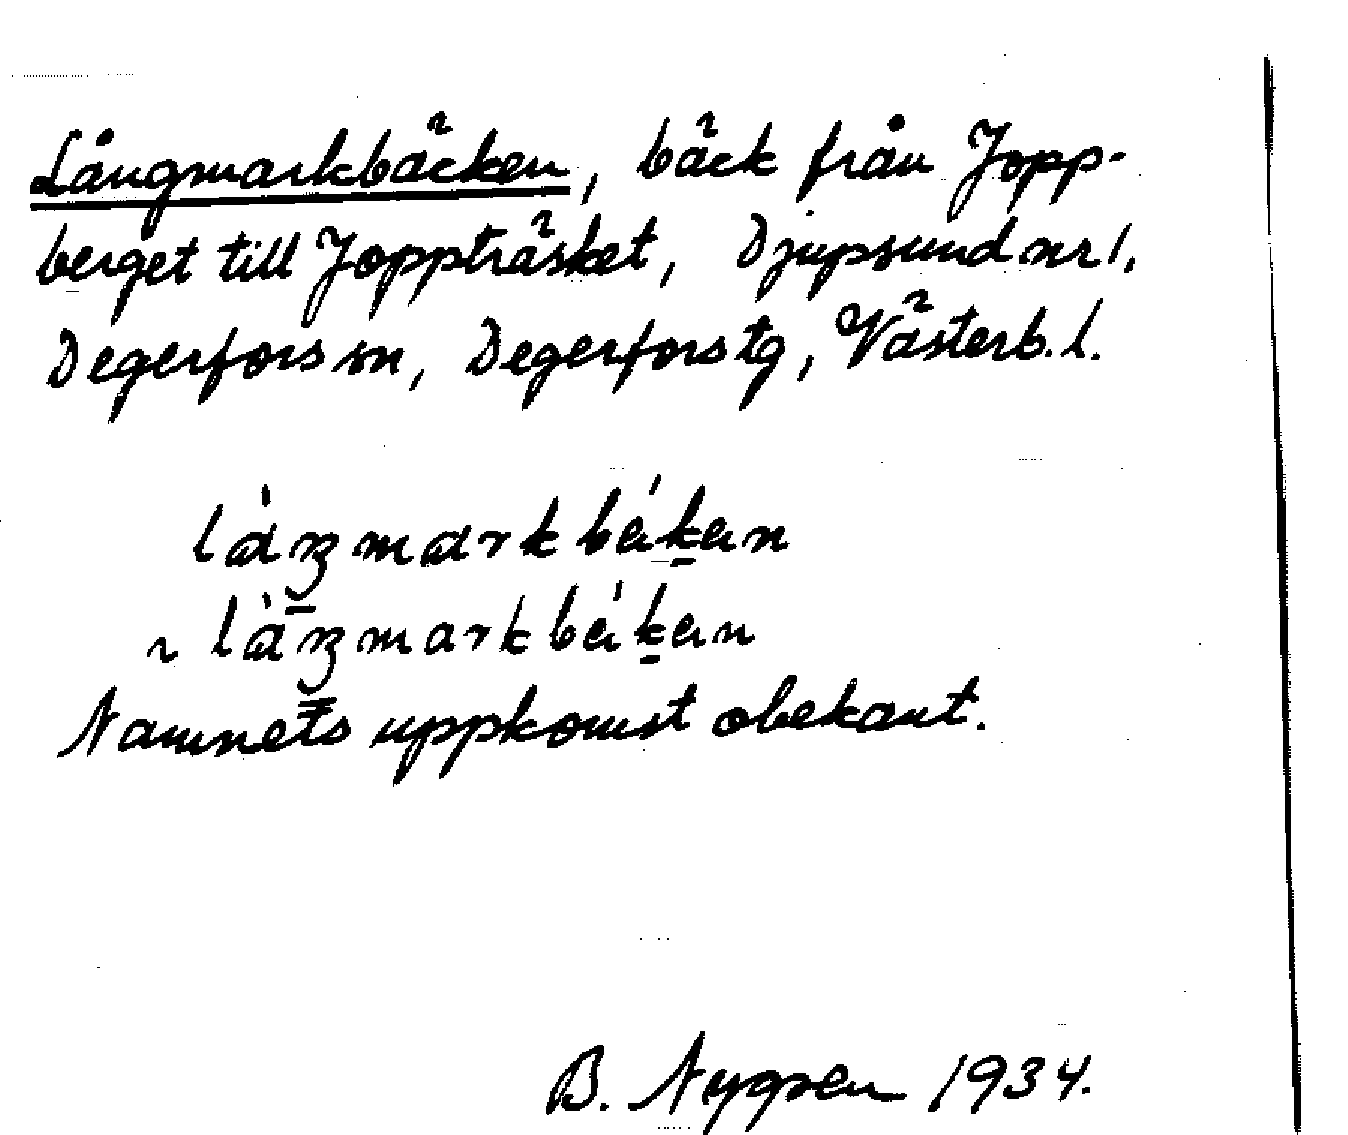 Långmarkbäcken, bäck från Jopp-
berget till Joppträsket, Djupsund nr 1,
Degerfors sn, Degerfors tg, Västerb. l.
Namnets uppkomst obekant.
B. Nygren 1934.